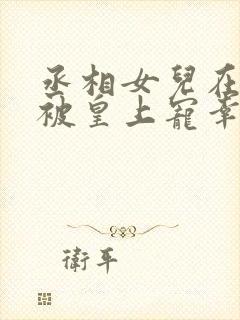 丞相女兒在
被皇上寵幸
衛平